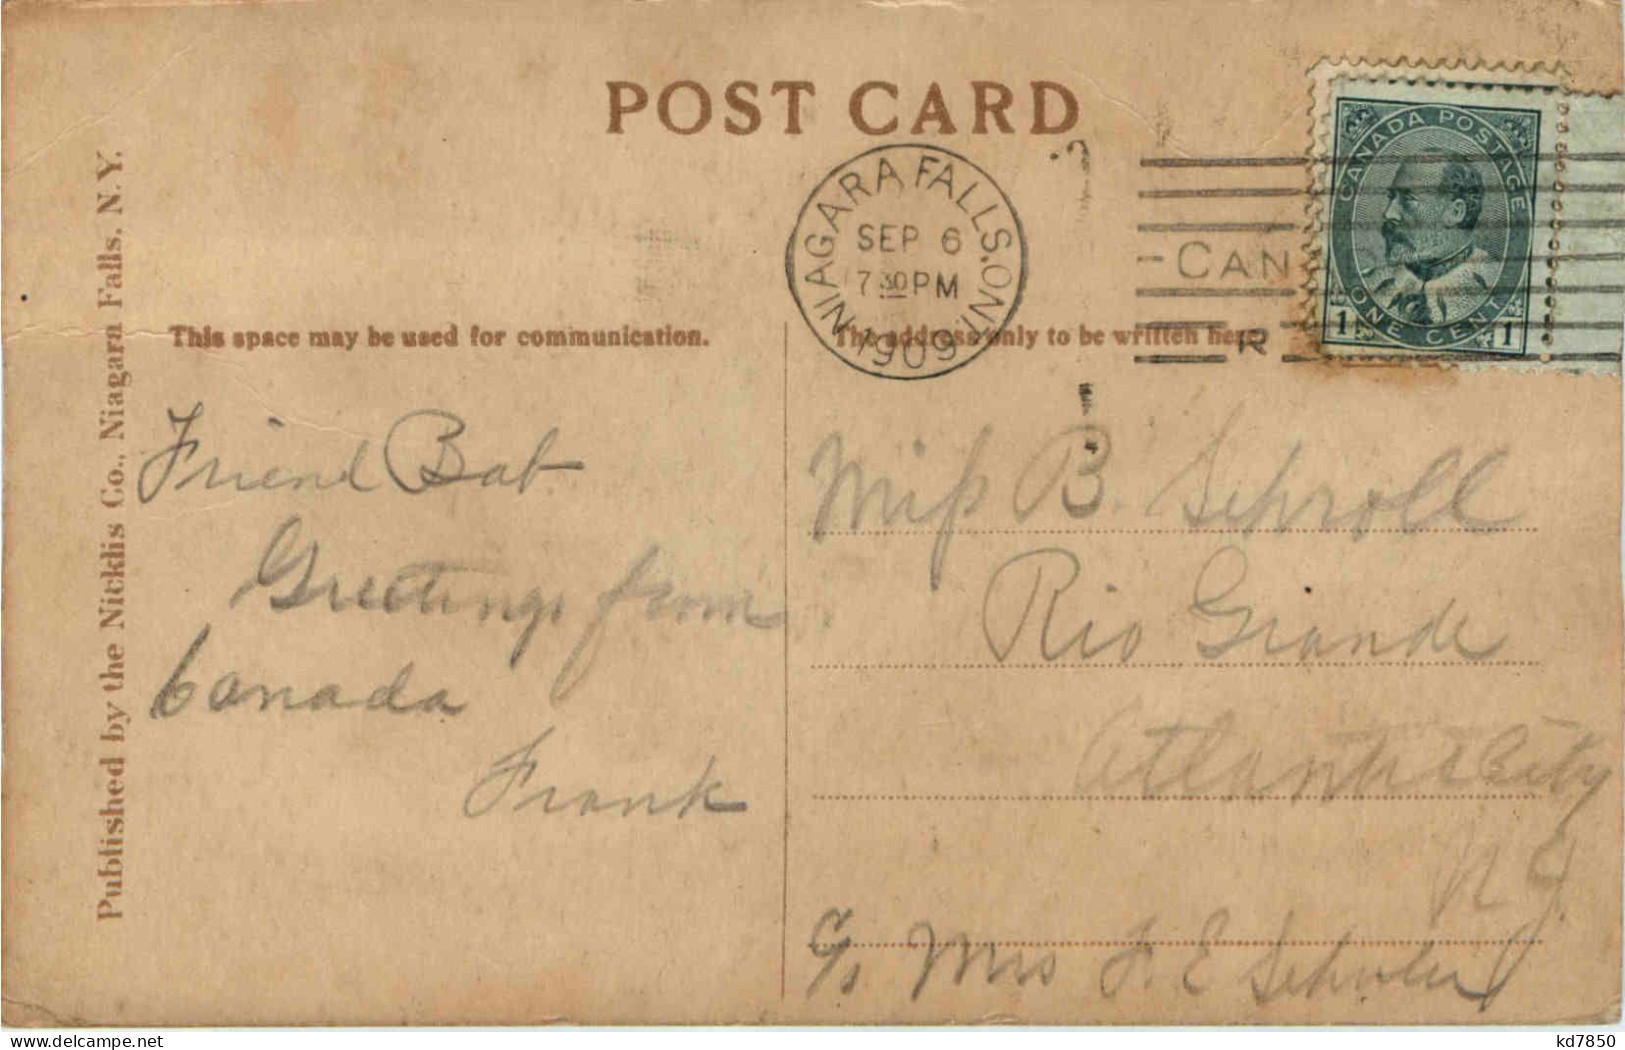 POST CARD
NIAGARA FALLS. ONT.
SEP 6
7 30 PM
1909
CAN
R
CANADA POSTAGE
1 ONE CENT 1
This space may be used for communication.
The address only to be written here.
Published by the Nicklis Co., Niagara Falls, N. Y.
Friend Bab
Greetings from
Canada
Frank
Miss B. Schroll
Rio Grande
Atlantic City
N J.
c/o Mrs F. E
kd7850